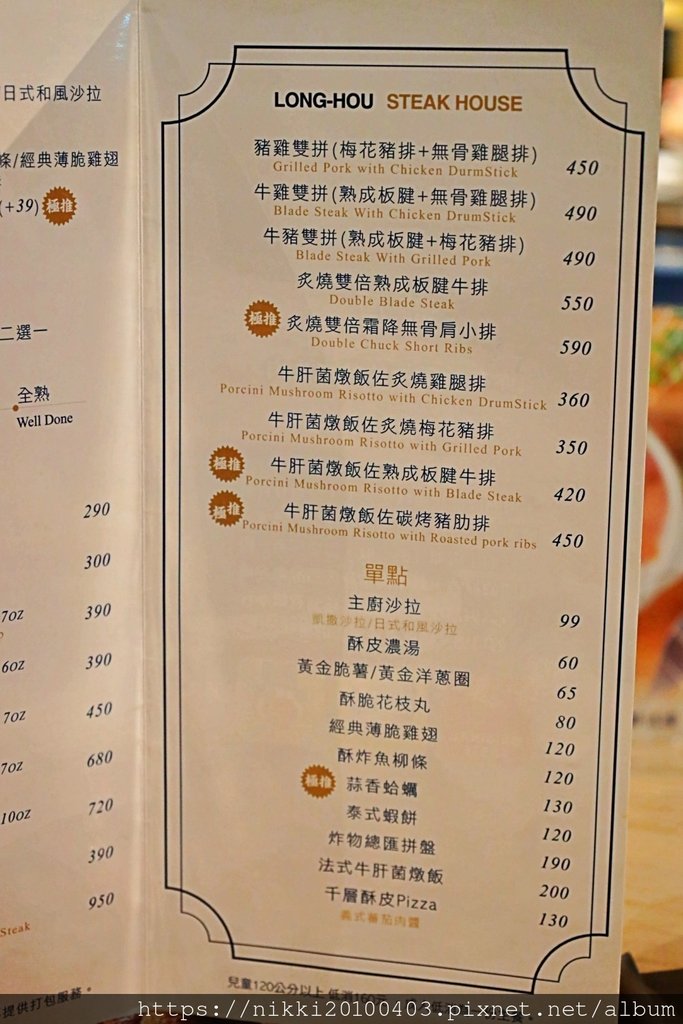 日式和風沙拉
條/經典薄脆雞翅
(+39) 極推
二選一
全熟
Well Done
290
300
7oz 390
6oz 390
7oz 450
7oz 680
10oz 720
390
950
Steak
提供打包服務。
LONG-HOU STEAK HOUSE
豬雞雙拼(梅花豬排+無骨雞腿排)
Grilled Pork with Chicken DurmStick 450
牛雞雙拼(熟成板腱+無骨雞腿排)
Blade Steak With Chicken DrumStick 490
牛豬雙拼(熟成板腱+梅花豬排)
Blade Steak With Grilled Pork 490
炙燒雙倍熟成板腱牛排
Double Blade Steak 550
極推 炙燒雙倍霜降無骨肩小排
Double Chuck Short Ribs 590
牛肝菌燉飯佐炙燒雞腿排
Porcini Mushroom Risotto with Chicken DrumStick 360
牛肝菌燉飯佐炙燒梅花豬排
Porcini Mushroom Risotto with Grilled Pork 350
極推 牛肝菌燉飯佐熟成板腱牛排
Porcini Mushroom Risotto with Blade Steak 420
極推 牛肝菌燉飯佐碳烤豬肋排
Porcini Mushroom Risotto with Roasted pork ribs 450
單點
主廚沙拉 99
凱撒沙拉/日式和風沙拉
酥皮濃湯 60
黃金脆薯/黃金洋蔥圈 65
酥脆花枝丸 80
經典薄脆雞翅 120
酥炸魚柳條 120
極推 蒜香蛤蠣 130
泰式蝦餅 120
炸物總匯拼盤 190
法式牛肝菌燉飯 200
千層酥皮Pizza 130
義式蕃茄肉醬
兒童120公分以上 低消160元
https://nikki20100403.pixnet.net/album